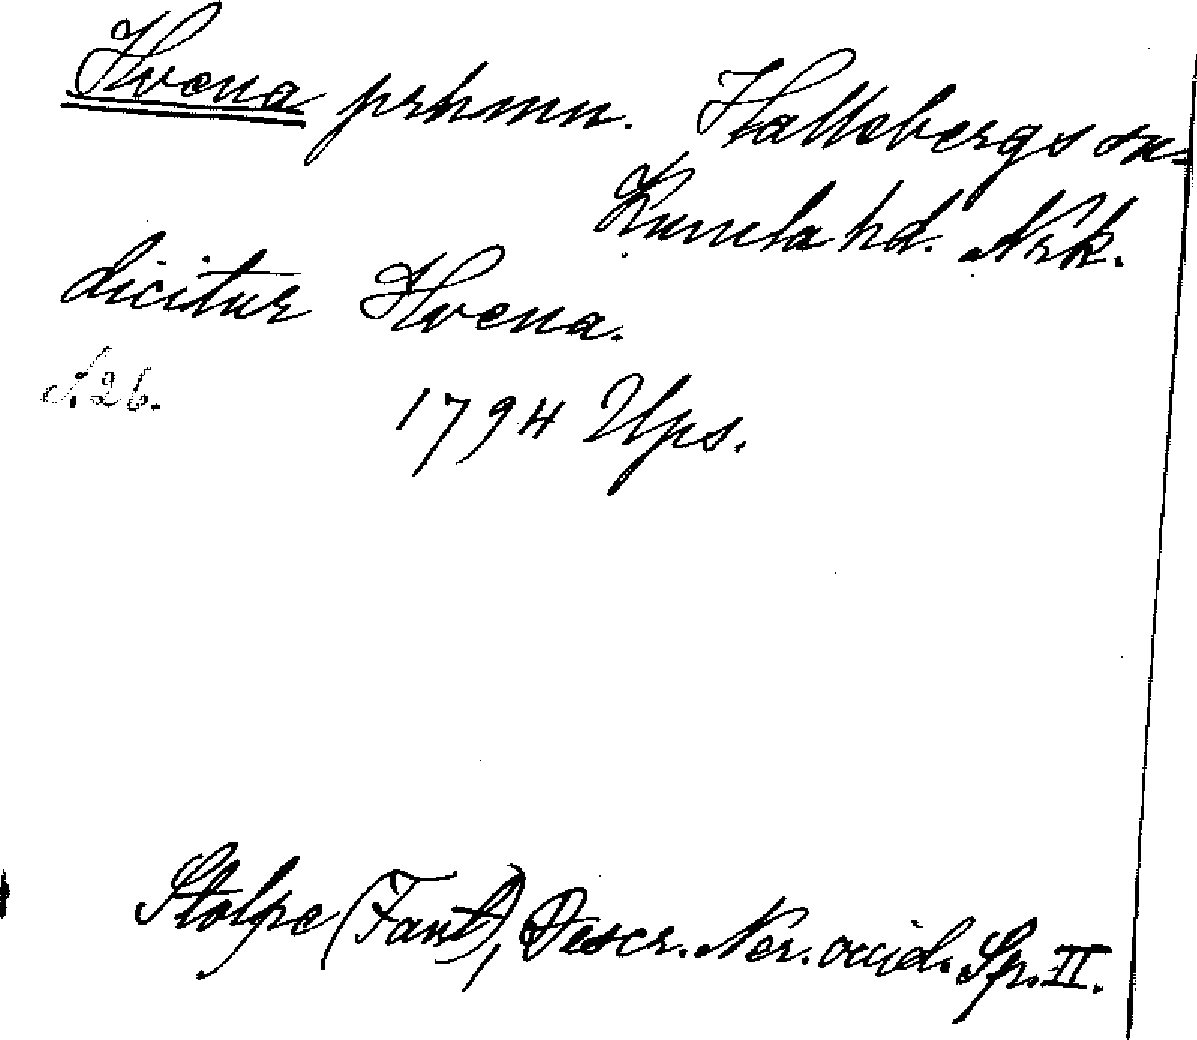 Hvena prhmn. Hallebergs sn
Kumla hd. Nrk.
dicitur Hvena.
s. 26.
1794 Ups.
Stolpe (Fant), Descr. Ner. occid. Sp. II.